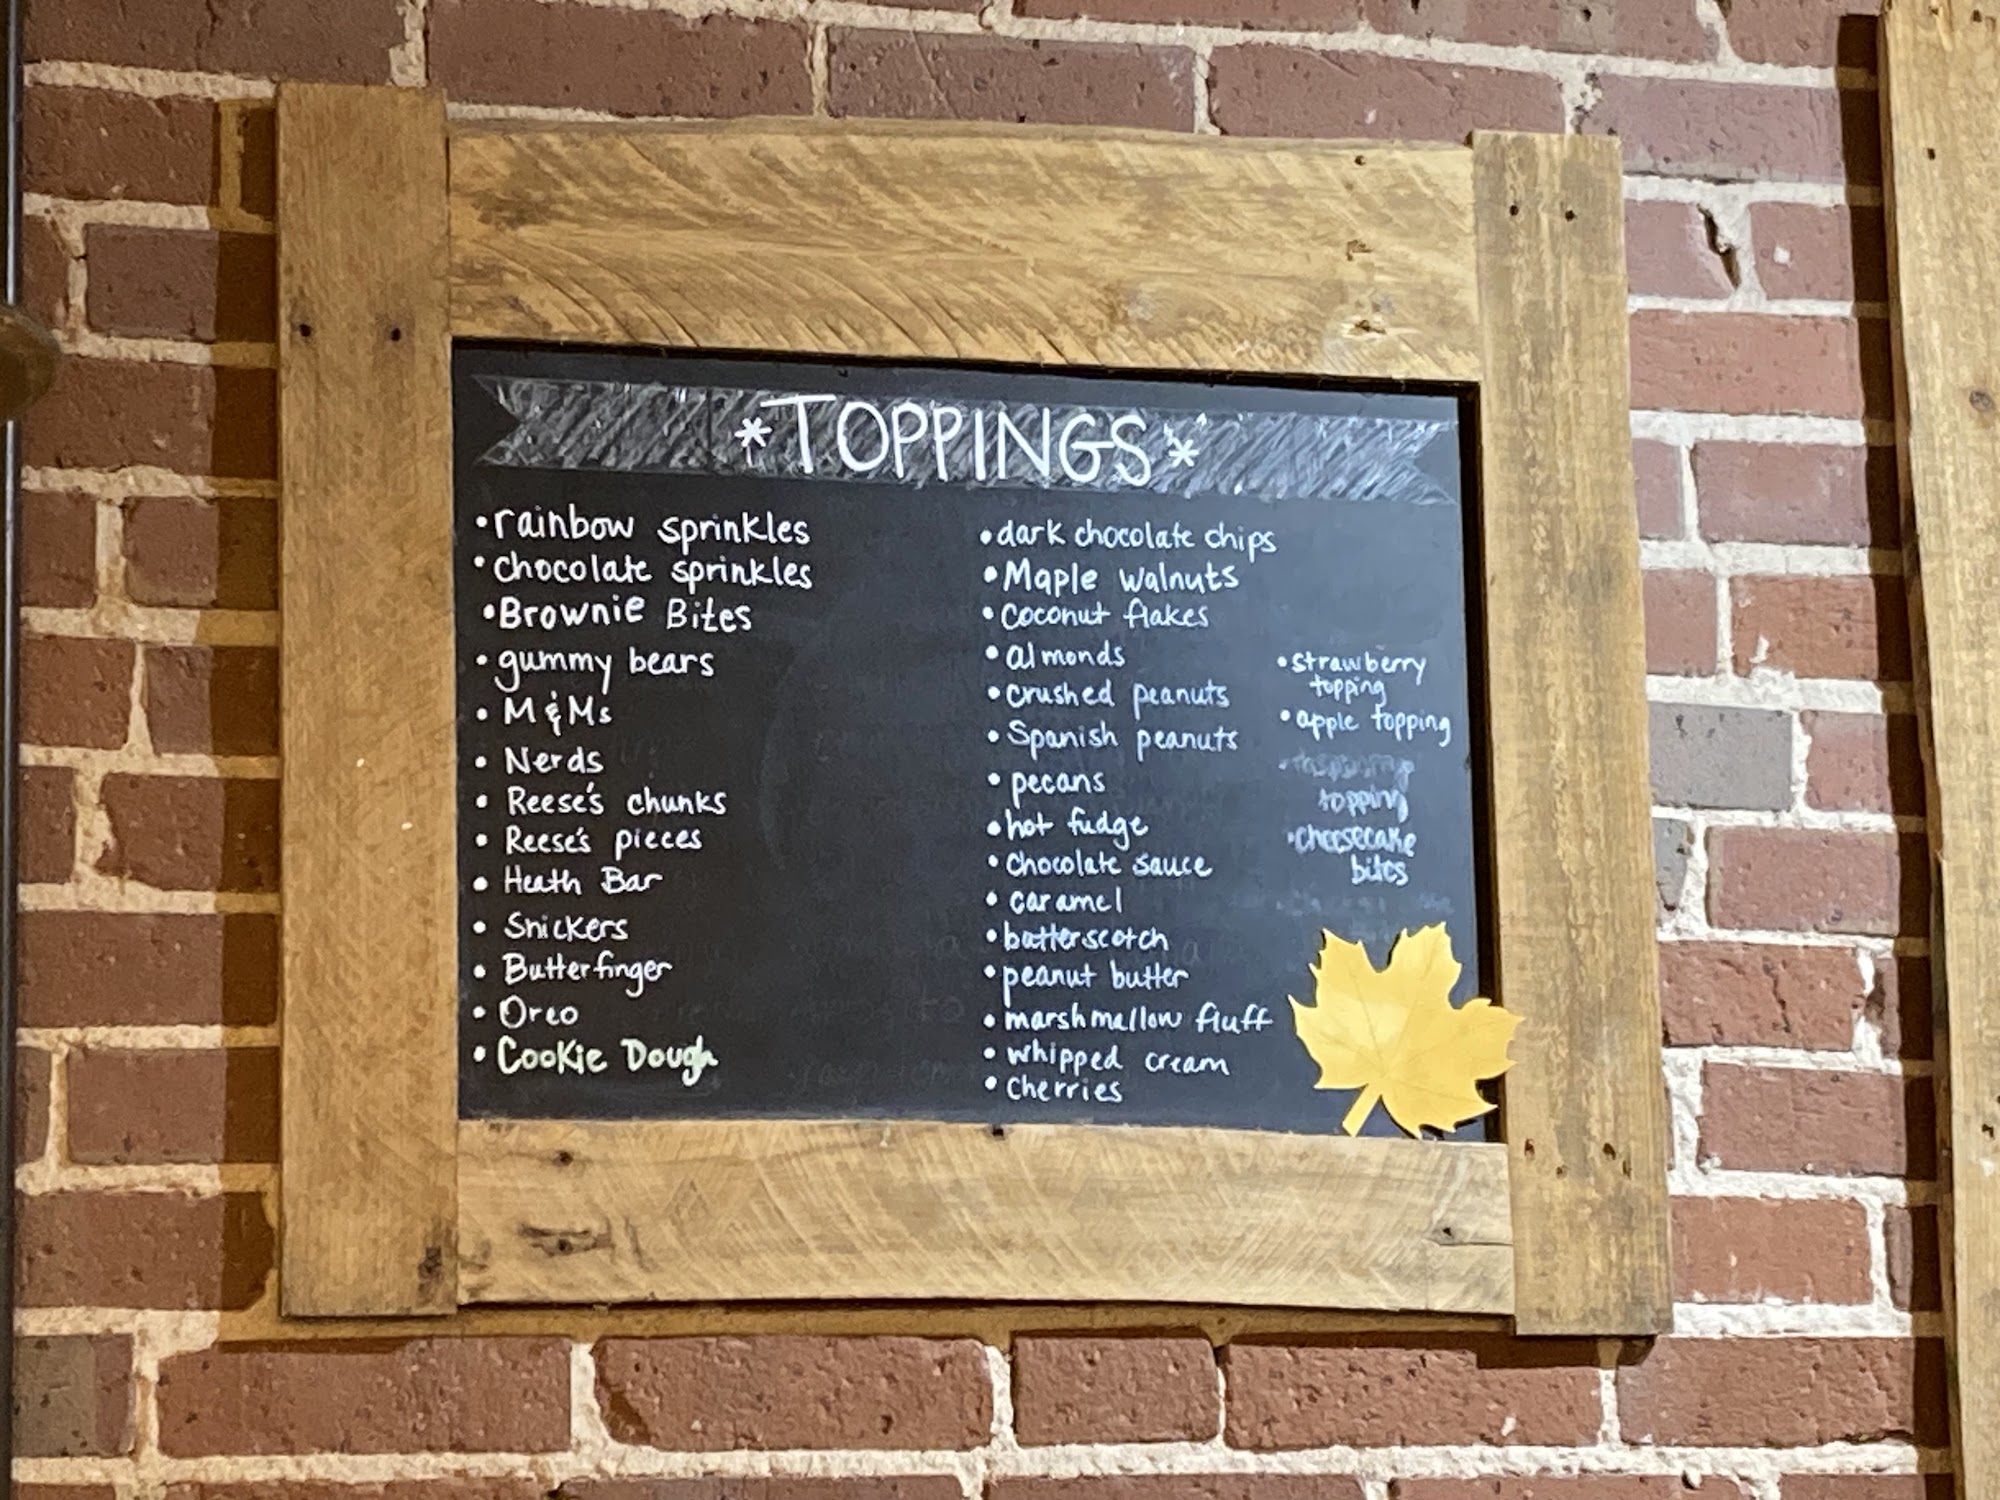 *TOPPINGS*
•rainbow sprinkles
•chocolate sprinkles
•Brownie Bites
•gummy bears
•M&Ms
•Nerds
•Reese's chunks
•Reese's pieces
•Heath Bar
•Snickers
•Butterfinger
•Oreo
•Cookie Dough
•dark chocolate chips
•Maple walnuts
•coconut flakes
•almonds
•crushed peanuts
•Spanish peanuts
•pecans
•hot fudge
•chocolate sauce
•caramel
•butterscotch
•peanut butter
•marshmallow fluff
•whipped cream
•cherries
•strawberry
topping
•apple topping
topping
•cheesecake
bites